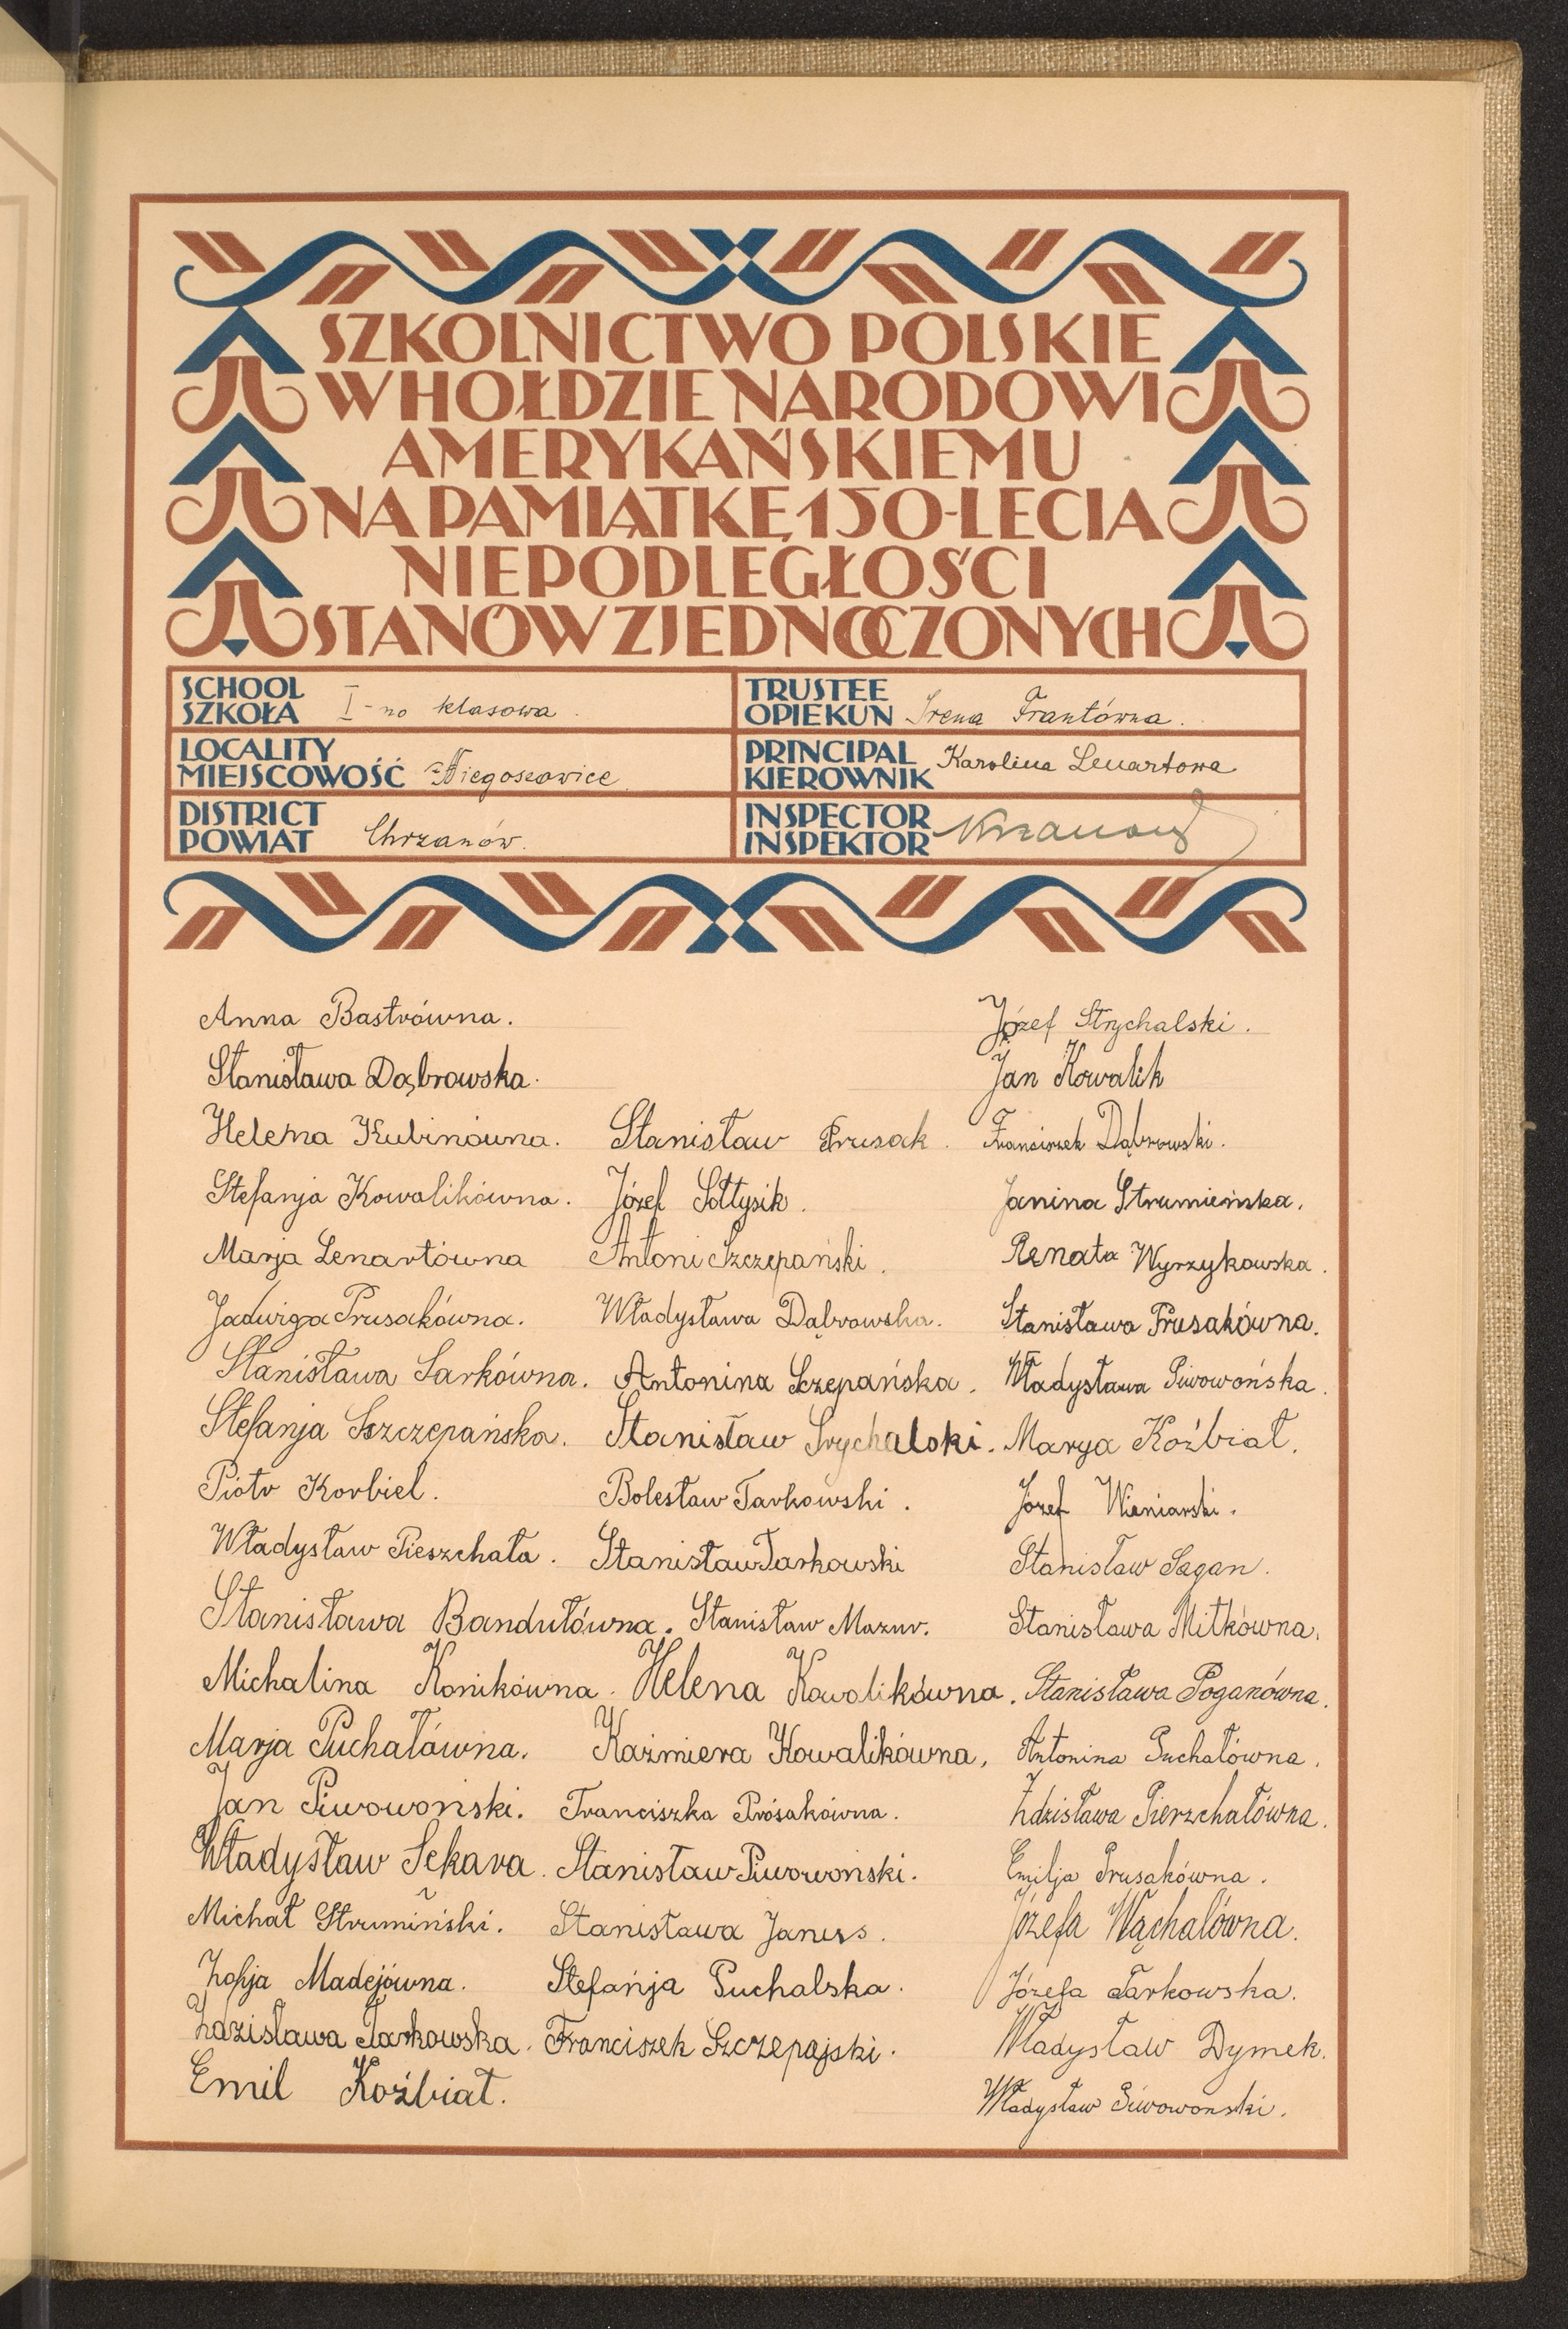 SZKOLNICTWO POLSKIE
W HOŁDZIE NARODOWI
AMERYKAŃSKIEMU
NA PAMIĄTKĘ 150-LECIA
NIEPODLEGŁOŚCI
STANÓW ZJEDNOCZONYCH
SCHOOL
SZKOŁA I-no klasowa.
TRUSTEE
OPIEKUN Irena Frantówna.
LOCALITY
MIEJSCOWOŚĆ Niegoszowice
PRINCIPAL
KIEROWNIK Karolina Lenartowa
DISTRICT
POWIAT Chrzanów.
INSPECTOR
INSPEKTOR
Anna Bastrówna.
Stanisława Dąbrowska.
Helena Kubinówna.
Stefanja Kowalikówna.
Marja Lenartówna
Jadwiga Prusakówna.
Stanisława Sarkówna.
Stefanja Szczepańska.
Piotr Korbiel.
Władysław Pieszchała.
Stanisława Bandułówna.
Michalina Konikówna.
Marja Puchałówna.
Jan Piwowoński.
Władysław Sekara.
Michał Strumiński.
Zofja Madejówna.
Zdzisława Tarkowska.
Emil Koźbiał.
Stanisław Prusak.
Józef Sołtysik.
Antoni Szczepański.
Władysława Dąbrowska.
Antonina Sczepańska.
Stanisław Srychalski.
Bolesław Tarkowski.
Stanisław Tarkowski
Stanisław Mazur.
Helena Kowalikówna.
Kaźmiera Kowalikówna,
Franciszka Prósakówna.
Stanisław Piwowoński.
Stanisława Janess.
Stefańja Puchalska.
Franciszek Szczepajski.
Józef Strychalski.
Jan Kowalik
Franciszek Dąbrowski.
Janina Strumieńska.
Renata Wyrzykowska.
Stanisława Prusakówna.
Władysława Piwowońska.
Marya Koźbiał.
Józef Wieniarski.
Stanisław Sagan.
Stanisława Mitkówna.
Stanisława Poganówna.
Antonina Puchałówna.
Zdzisława Pierzchałówna.
Emilja Prusakówna.
Józefa Wąchalówna.
Józefa Tarkowska.
Władysław Dymek.
Władysław Piwowonski.